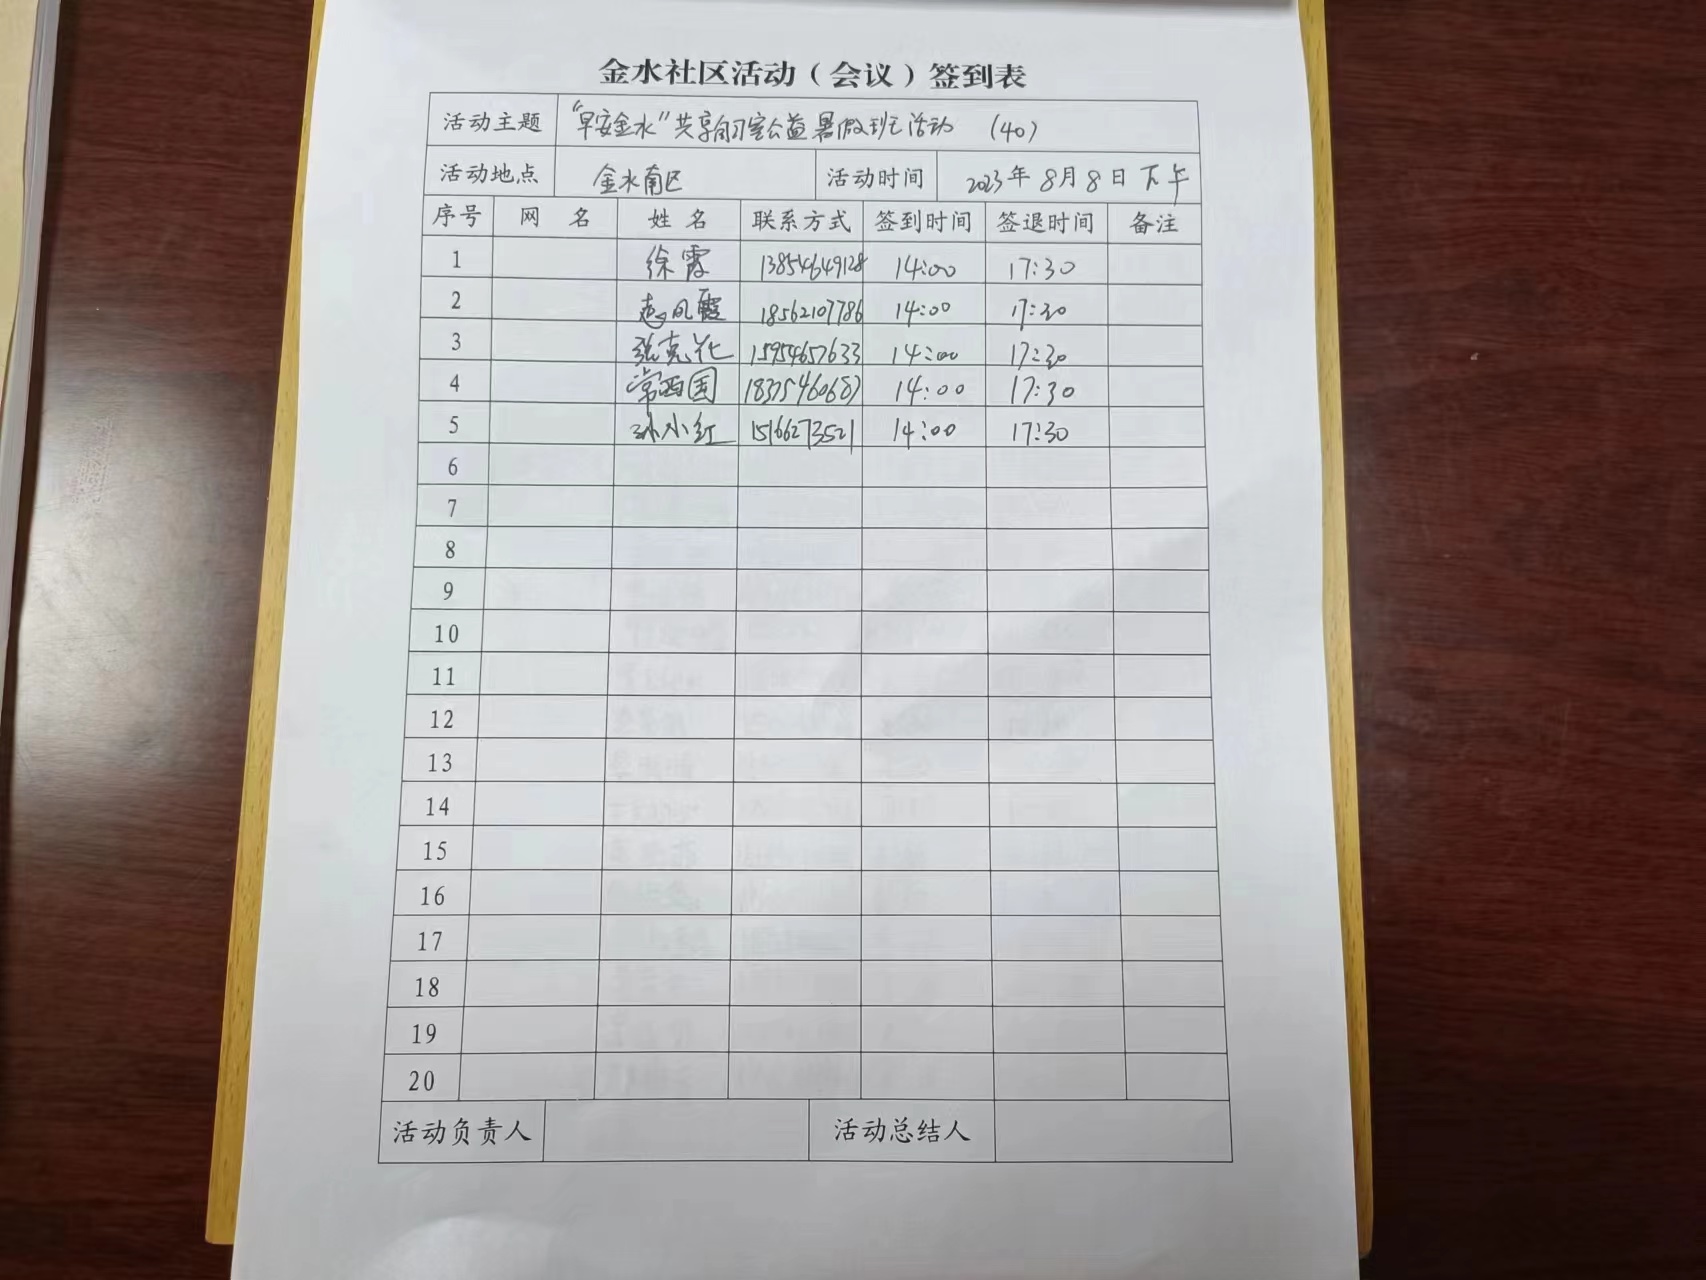 金水社区活动（会议）签到表
活动主题 “早安金水”共享自习室公益暑假班活动 （40）
活动地点 金水南区 活动时间 2023年8月8日下午
序号 网 名 姓 名 联系方式 签到时间 签退时间 备注
1 徐霞 13854649128 14:00 17:30
2 赵凤霞 18562107786 14:00 17:30
3 张克花 15954657633 14:00 17:30
4 常西国 14:00 17:30
5 孙小红 15166273521 14:00 17:30
6
7
8
9
10
11
12
13
14
15
16
17
18
19
20
活动负责人 活动总结人